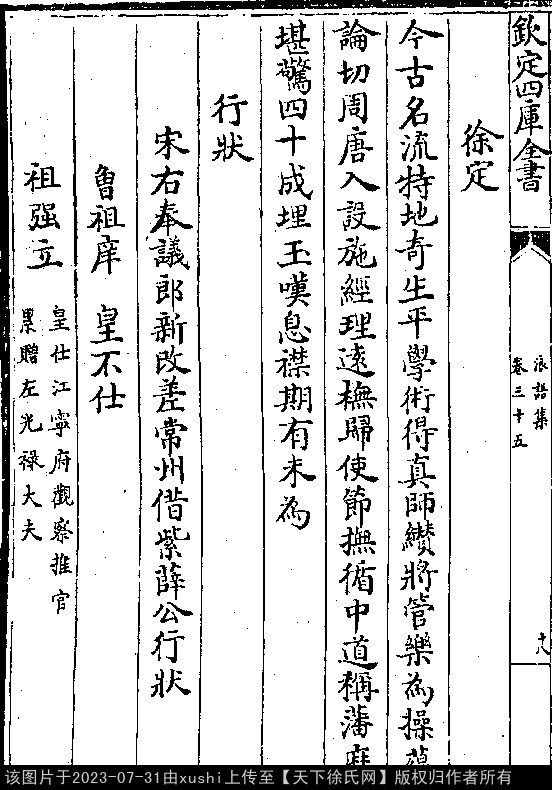 欽定四庫全書
浪語集
卷三十五
十八
徐定
今古名流特地奇生平學術得真師纉將管樂為操
論切周唐入設施經理逺橅歸使節撫循中道稱藩
堪驚四十成埋玉嘆息襟期有未為
行狀
宋右奉議郎新改差常州借紫薛公行狀
曾祖庠 皇不仕
祖强立
皇仕江寧府觀察推官
累贈左光禄大夫
该图片于2023-07-31由xushi上传至【天下徐氏网】版权归作者所有